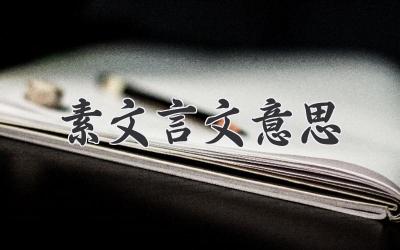 素文言文意思